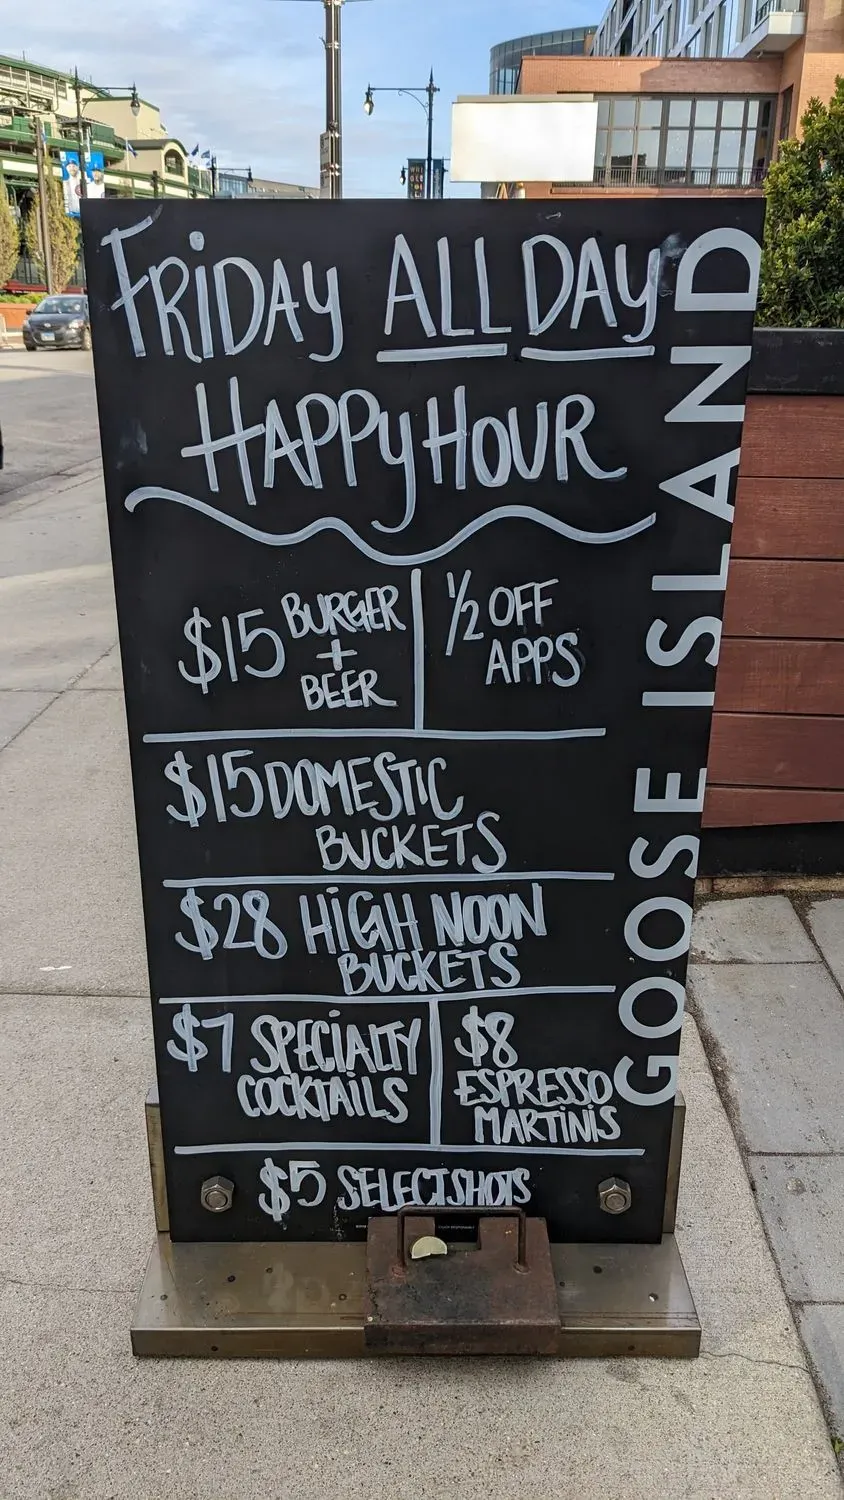 FRiDAY ALL DAY
HAPPY HOUR
$15 BURGER
+
BEER
1/2 OFF
APPS
$15 DOMESTiC
BUCKETS
$28 HiGH NOON
BUCKETS
$7 SPECiALTY
COCKTAiLS
$8
ESPRESSO
MARTiNiS
$5 SELECT SHOTS
GOOSE ISLAND